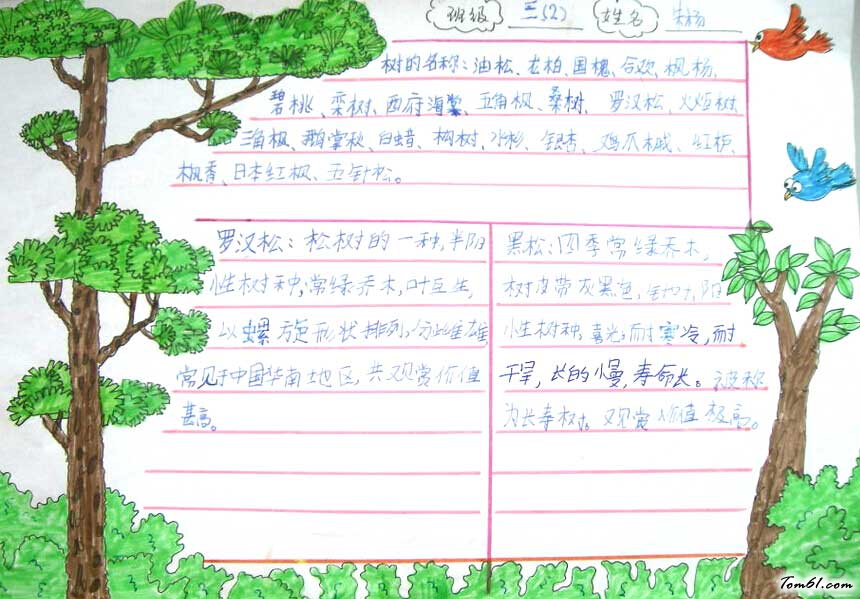 班级 三(2) 姓名 朱杨
树的名称:油松、龙柏、国槐、合欢、枫杨、
碧桃、栾树、西府海棠、五角枫、桑树、罗汉松、火炬树
三角枫、鹅掌秋、白蜡、构树、水杉、银杏、鸡爪槭、红栌、
枫香、日本红枫、五针松。
罗汉松:松树的一种,半阳
性树种,常绿乔木,叶互生,
以螺旋形状排列,分雌雄,
常见于中国华南地区,共观赏价值
甚高。
黑松:四季常绿乔木,
树皮带灰黑色,阳
性树种,喜光,耐寒冷,耐
干旱,长的慢,寿命长。被称
为长寿树。观赏价值极高。
Tom61.com